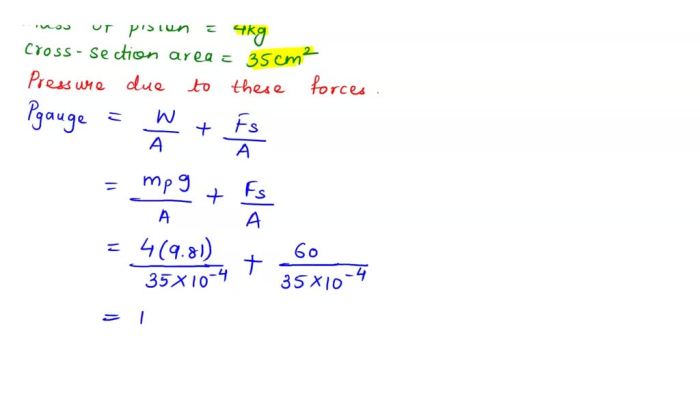 Mass of piston = 4kg
Cross-section area = 35cm²
Pressure due to these forces.
Pgauge = W/A + Fs/A
= mpg/A + Fs/A
= 4(9.81)/35×10⁻⁴ + 60/35×10⁻⁴
= 1